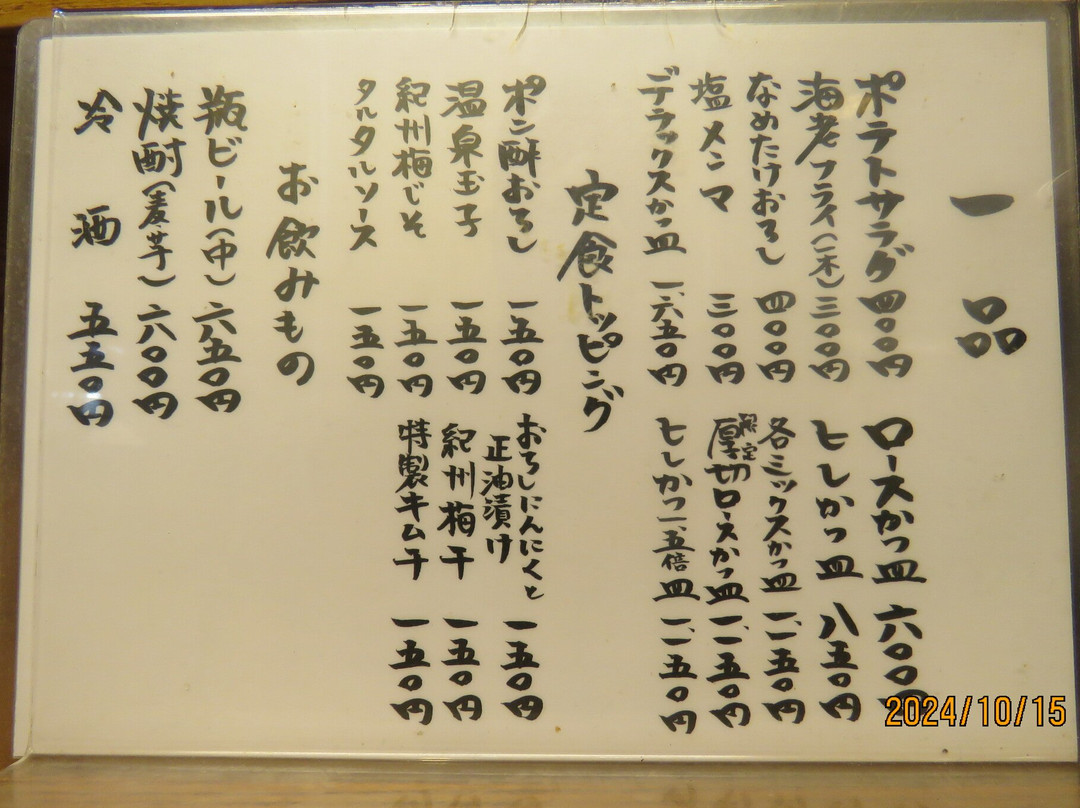 一品
ポテトサラダ 四〇〇円
ロースかつ皿 六〇〇円
海老フライ(一本) 三〇〇円
ヒレかつ皿 八五〇円
なめたけおろし 四〇〇円
各ミックスかつ皿 一、一五〇円
塩メンマ 三〇〇円
限定
厚切ロースかつ皿 一、一五〇円
デラックスかつ皿 一、六五〇円
ヒレかつ一、五倍皿 一、一五〇円
定食トッピング
ポン酢おろし 一五〇円
おろしにんにくと
正油漬け 一五〇円
温泉玉子 一五〇円
紀州梅干 一五〇円
紀州梅じそ 一五〇円
特製キムチ 一五〇円
タルタルソース 一五〇円
お飲みもの
瓶ビール(中) 六五〇円
焼酎(麦芋) 六〇〇円
冷酒 五五〇円
2024/10/15